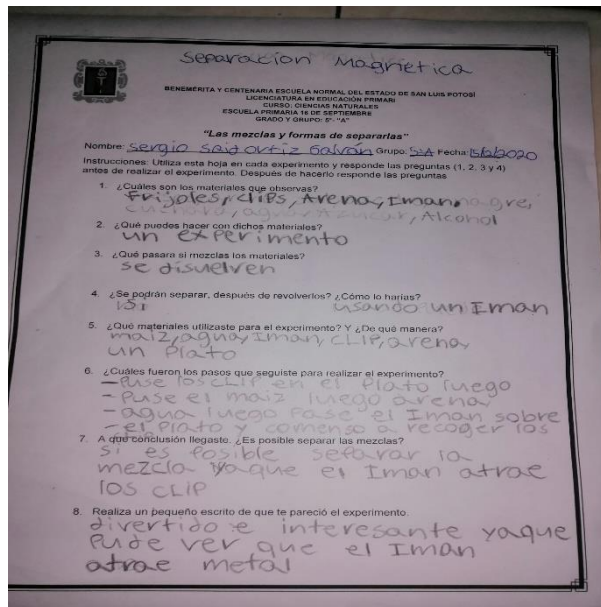 Separacion Magnetica
BENEMÉRITA Y CENTENARIA ESCUELA NORMAL DEL ESTADO DE SAN LUIS POTOSÍ
LICENCIATURA EN EDUCACIÓN PRIMARI
CURSO: CIENCIAS NATURALES
ESCUELA PRIMARIA 16 DE SEPTIEMBRE
GRADO Y GRUPO: 5°- "A"
"Las mezclas y formas de separarlas"
Nombre: Sergio Said Ortiz Galván Grupo: 5-A Fecha: 15/2/2020
Instrucciones: Utiliza esta hoja en cada experimento y responde las preguntas (1, 2, 3 y 4)
antes de realizar el experimento. Después de hacerlo responde las preguntas
1. ¿Cuáles son los materiales que observas?
Frijoles, clips, Arena, Iman, agre,
cuchara, agua, Azucar, Alcohol
2. ¿Qué puedes hacer con dichos materiales?
un experimento
3. ¿Qué pasara si mezclas los materiales?
se disuelven
4. ¿Se podrán separar, después de revolverlos? ¿Cómo lo harías?
si usando un Iman
5. ¿Qué materiales utilizaste para el experimento? Y ¿De qué manera?
maiz, agua, Iman, CLIP, arena,
un Plato
6. ¿Cuáles fueron los pasos que seguiste para realizar el experimento?
-Puse los CLIP en el Plato luego
-Puse el maiz luego arena
-agua luego Pase el Iman sobre
-el Plato y comenso a recoger los
7. A qué conclusión llegaste. ¿Es posible separar las mezclas?
si es Posible separar la
mezcla yaque el Iman atrae
los CLIP
8. Realiza un pequeño escrito de que te pareció el experimento.
divertido e interesante yaque
Pude ver que el Iman
atrae metal